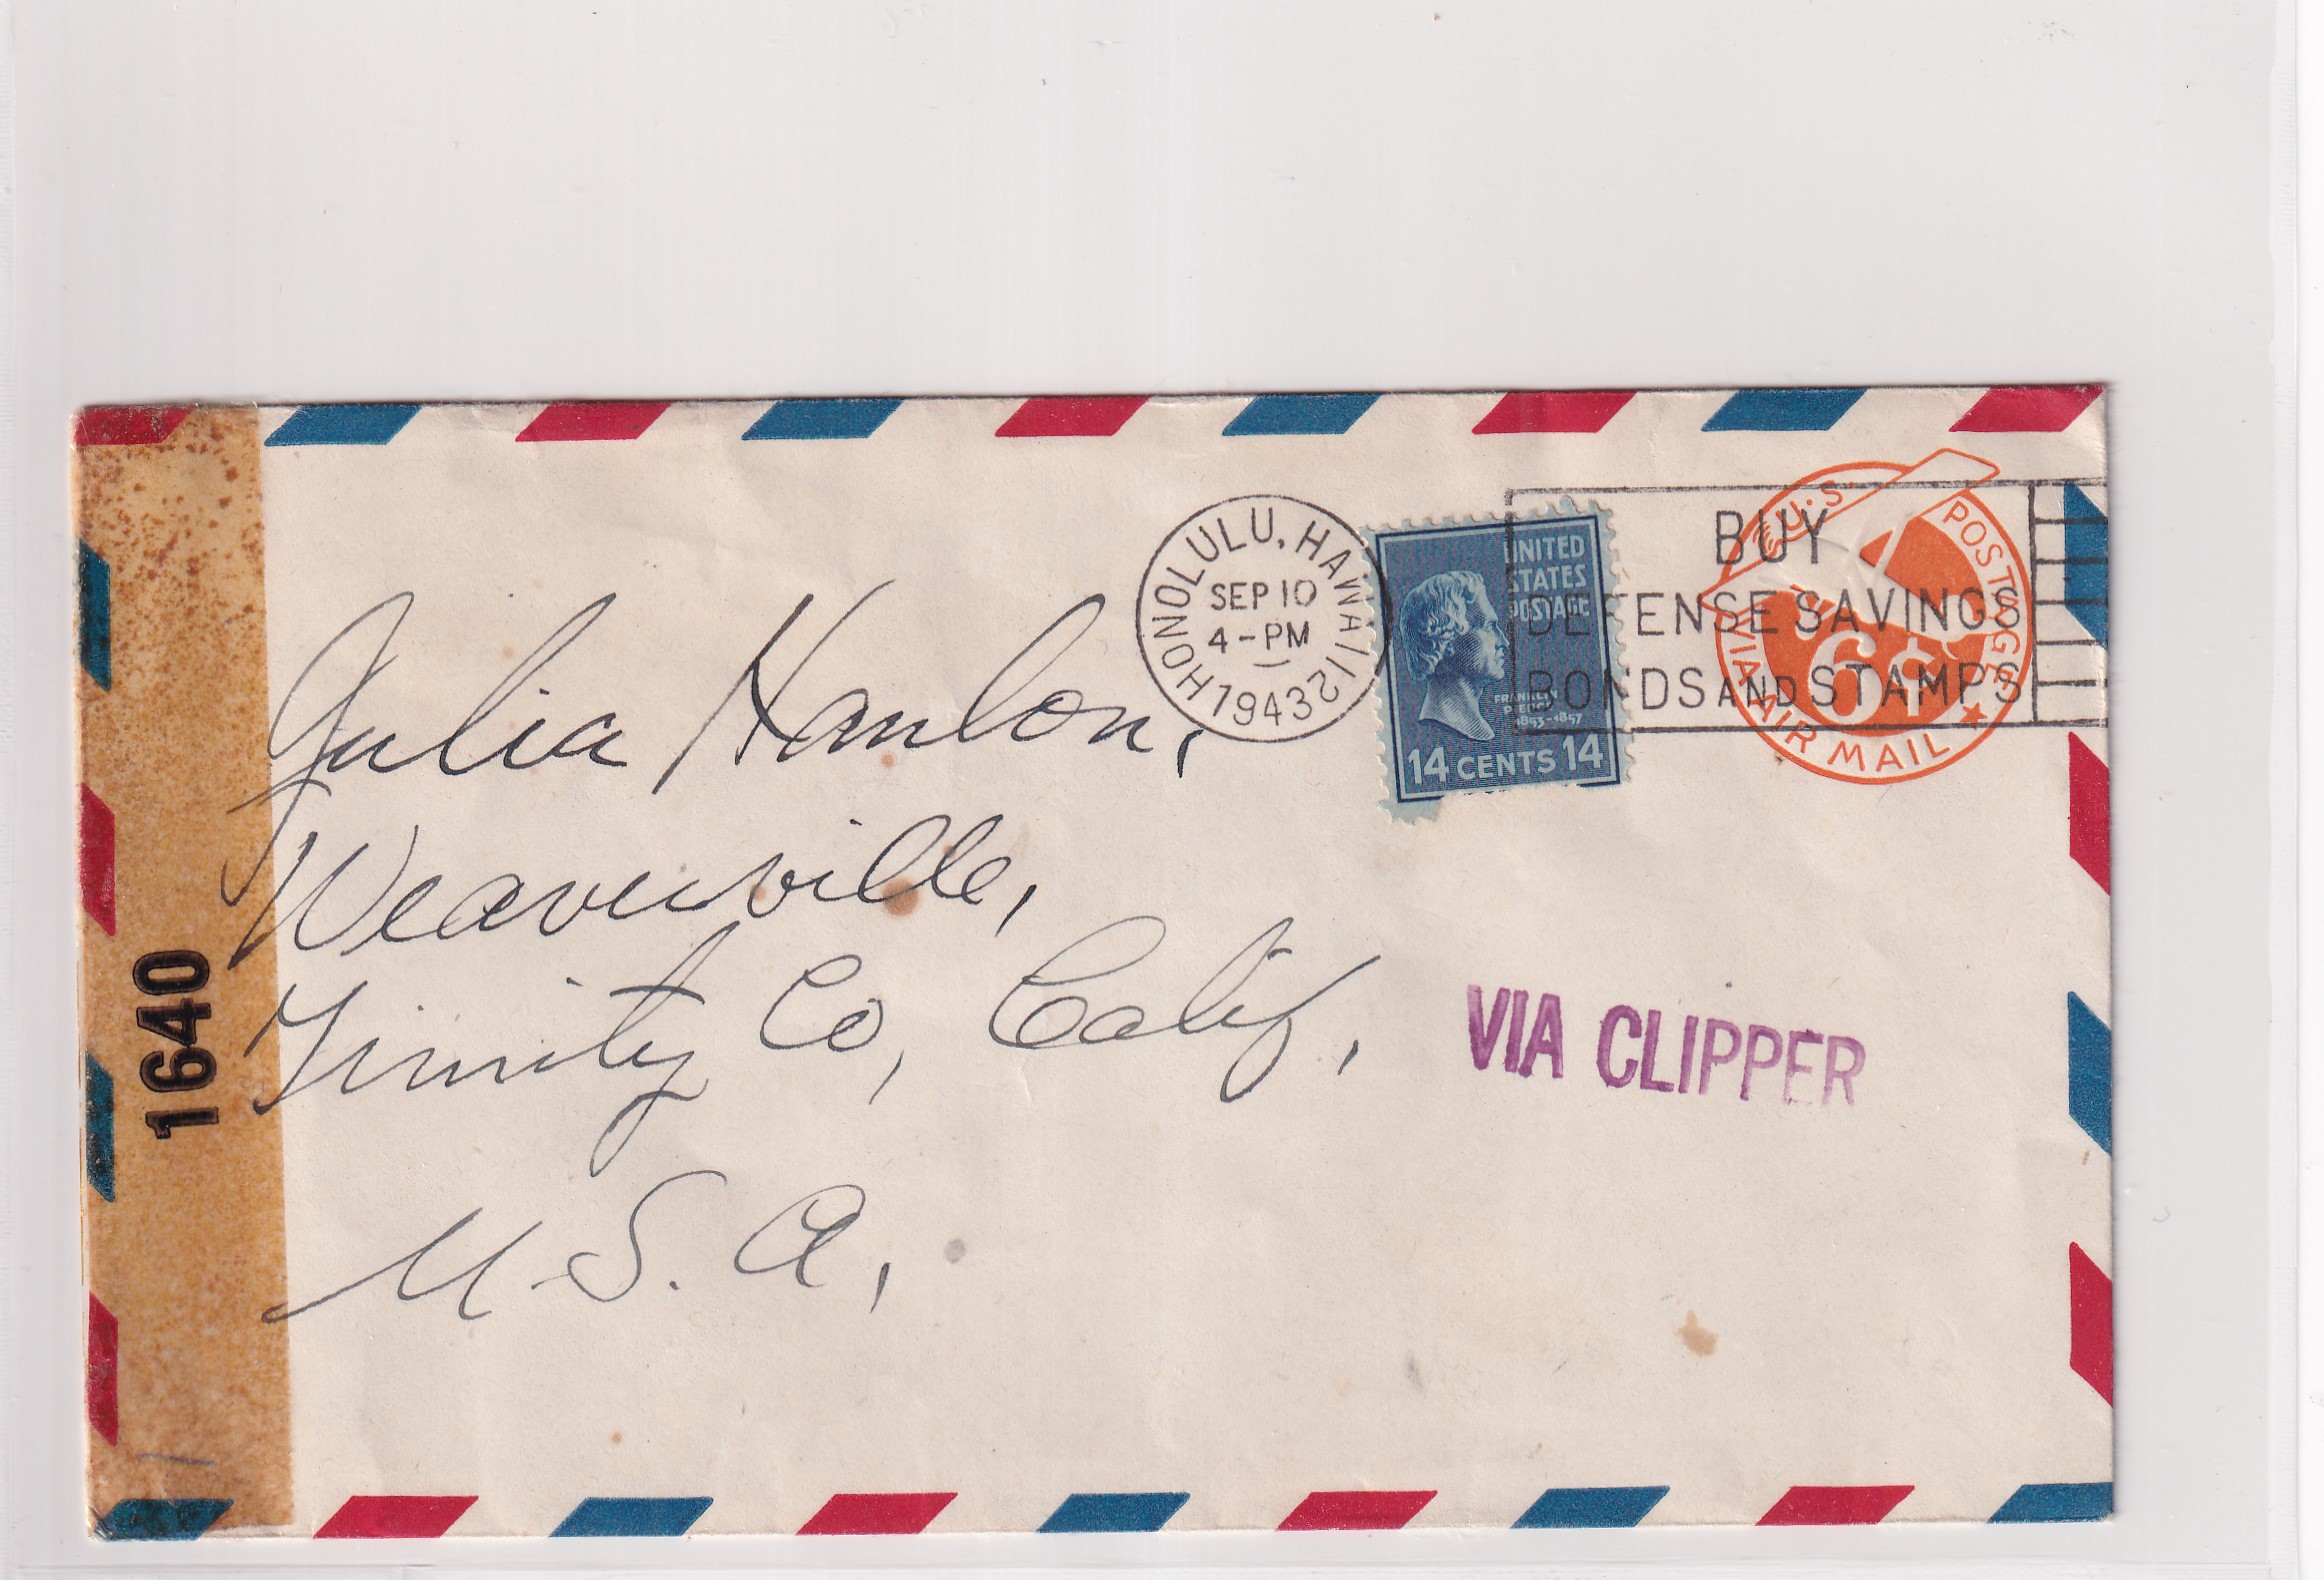 HONOLULU, HAWAII 2
SEP 10
4-PM
1943
UNITED
STATES
POSTAGE
FRANKLIN
PIERCE
1853-1857
14 CENTS 14
BUY
DEFENSE SAVINGS
BONDS AND STAMPS
U.S. POSTAGE
6¢
VIA AIR MAIL
Julia Hanlon,
Weaverville,
Trinity Co, Calif,
U.S.A,
VIA CLIPPER
1640